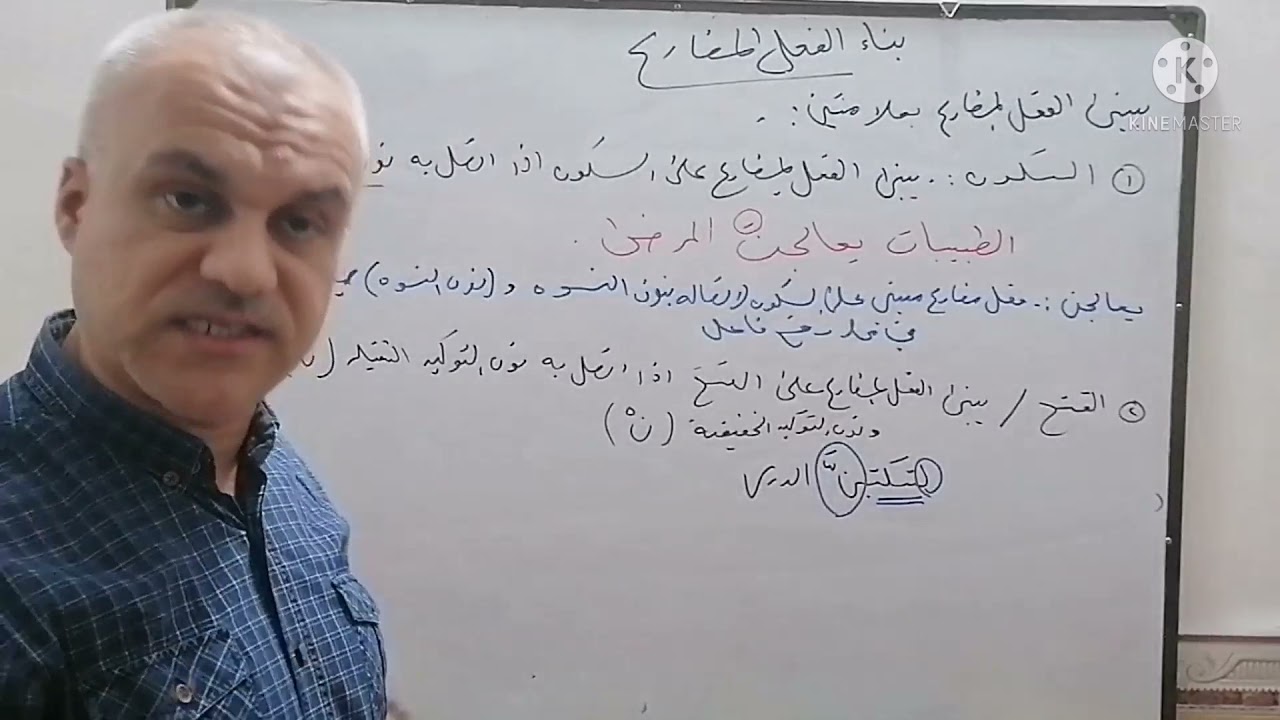 بناء الفعل المضارع
يبنى الفعل المضارع بعلامتين :.
① السكون :. يبنى الفعل المضارع على السكون اذا اتصل به نو
الطبيبات يعالجنَ المرضى .
يعالجن :. فعل مضارع مبني على السكون لاتصاله بنون النسوه و (نون النسوه)
في محل رفع فاعل
② الفتح / يبنى الفعل المضارع على الفتح اذا اتصل به نون التوكيد الثقيله (
ونون التوكيد الخفيفة (نْ)
لتكتبنَّ الدرس
K
KINEMASTER